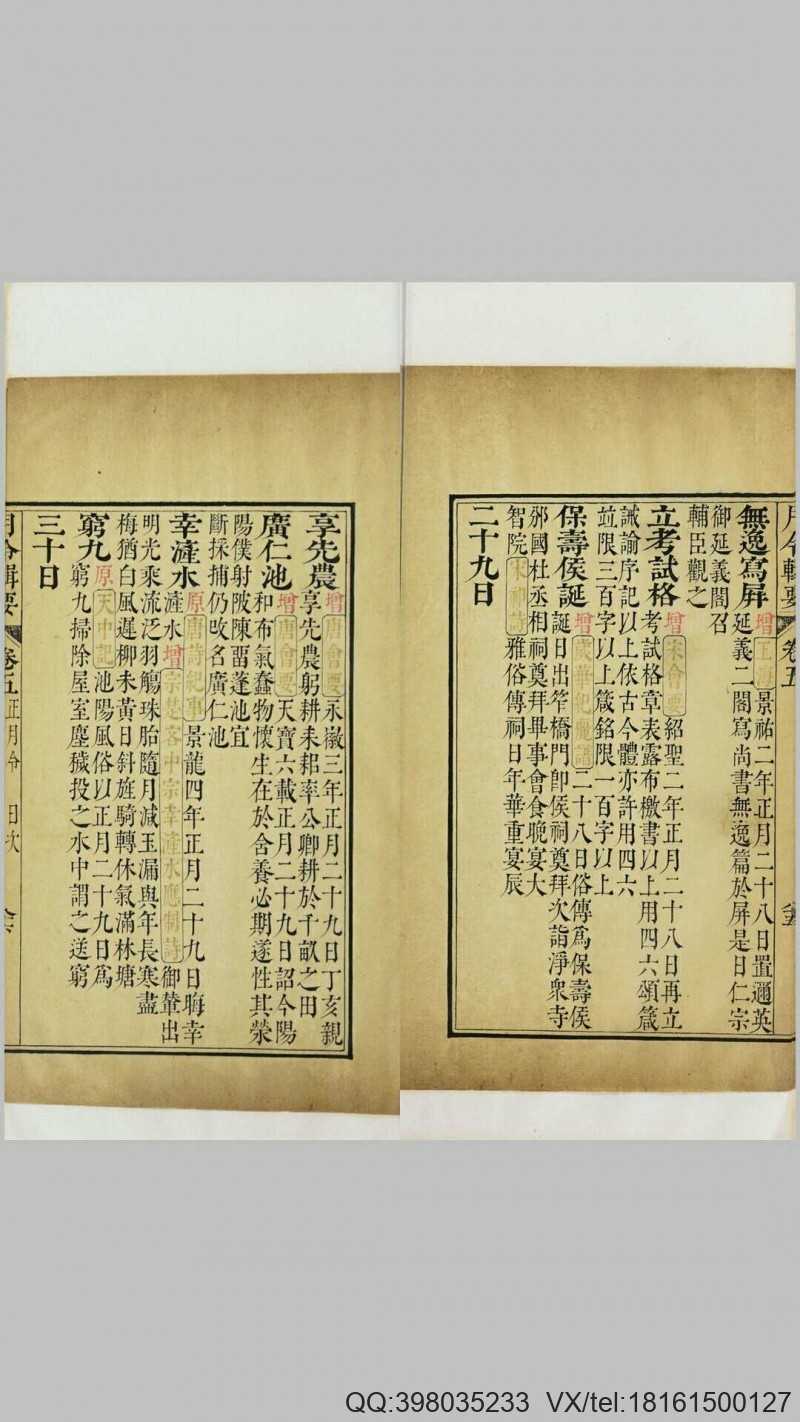 無逸寫屏增 景祐二年正月二十八日置邇英
延義二閣寫尚書無逸篇於屏是日仁宗
御延義閣召
輔臣觀之
立考試格增宋會要紹聖二年正月二十八日再立
考試格章表露布檄書以上用四六頌箴
誡諭序記以上依古今體亦許用四六
竝限三百字以上箴銘限一百字以上
保壽侯誕增歲華紀麗譜二十八日俗傳爲保壽侯
誕日出笮橋門卽侯祠奠拜次詣淨衆寺
邠國杜丞相祠奠拜畢事會食晚宴大
智院 雅俗傳祠日年華重宴辰
二十九日
月令輯要 卷五
享先農增唐會要永徽三年正月二十九日丁亥親
享先農躬耕耒耜率公卿耕於千畝之田
廣仁池增唐會要天寶六載正月二十九日詔今陽
和布氣蠢物懷生在於含養必期遂性其滎
陽僕射陂陳留蓬池宜
斷採捕仍攺名廣仁池
幸滻水原唐詩紀事景龍四年正月二十九日晦幸
滻水增宗楚客中宗幸滻水應制詩御輦出
明光乘流泛羽觴珠胎隨月減玉漏與年長寒盡
梅猶白風遲柳未黃日斜旌騎轉休氣滿林塘
窮九原天中記池陽風俗以正月二十九日爲
窮九掃除屋室塵穢投之水中謂之送窮
三十日
月令輯要 卷五 正月令 日次
QQ:398035233 VX/tel:18161500127